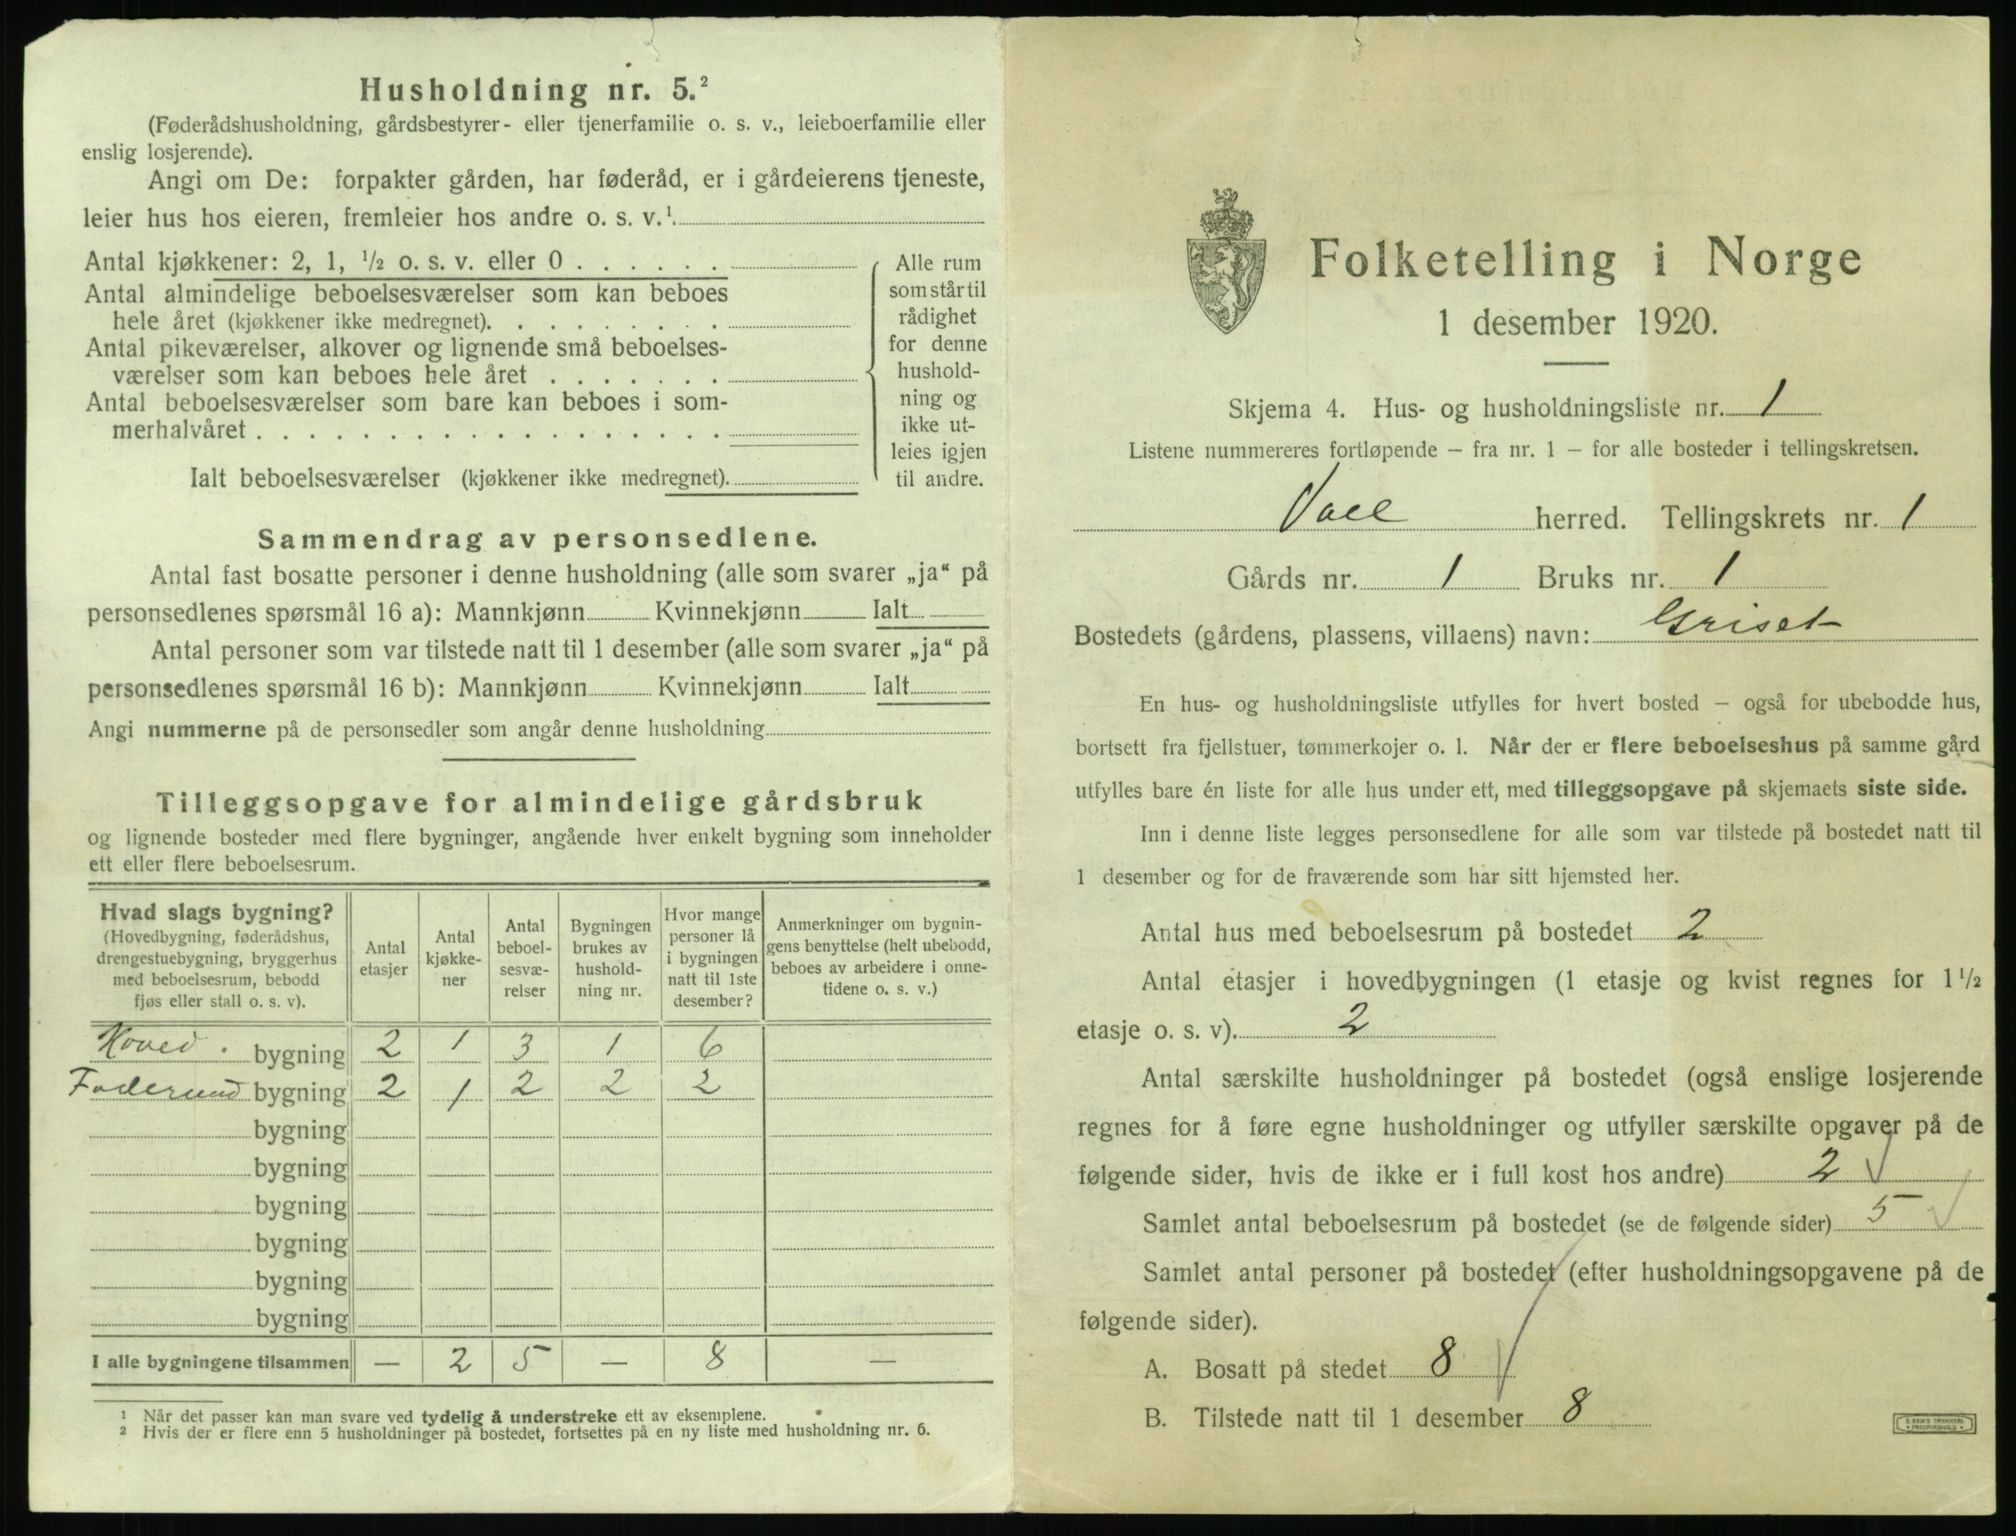 Husholdning nr. 5.²
(Føderådshusholdning, gårdsbestyrer- eller tjenerfamilie o. s. v., leieboerfamilie eller
enslig losjerende).
Angi om De: forpakter gården, har føderåd, er i gårdeierens tjeneste,
leier hus hos eieren, fremleier hos andre o. s. v.¹
Antal kjøkkener: 2, 1, ½ o. s. v. eller 0 . . . . . .
Antal almindelige beboelsesværelser som kan beboes
hele året (kjøkkener ikke medregnet). . . . . . . . .
Antal pikeværelser, alkover og lignende små beboelses-
værelser som kan beboes hele året . . . . . . .
Antal beboelsesværelser som bare kan beboes i som-
merhalvåret . . . . . . . . . . . . . . . . . .
Ialt beboelsesværelser (kjøkkener ikke medregnet).
Alle rum
som står til
rådighet
for denne
hushold-
ning og
ikke ut-
leies igjen
til andre.
Sammendrag av personsedlene.
Antal fast bosatte personer i denne husholdning (alle som svarer „ja“ på
personsedlenes spørsmål 16 a): Mannkjønn Kvinnekjønn Ialt
Antal personer som var tilstede natt til 1 desember (alle som svarer „ja“ på
personsedlenes spørsmål 16 b): Mannkjønn Kvinnekjønn Ialt
Angi nummerne på de personsedler som angår denne husholdning
Tilleggsopgave for almindelige gårdsbruk
og lignende bosteder med flere bygninger, angående hver enkelt bygning som inneholder
ett eller flere beboelsesrum.
Hvad slags bygning?
(Hovedbygning, føderådshus,
drengestuebygning, bryggerhus
med beboelsesrum, bebodd
fjøs eller stall o. s. v).
Antal
etasjer
Antal
kjøkke-
ner
Antal
beboel-
sesvæ-
relser
Bygningen
brukes av
hushold-
ning nr.
Hvor mange
personer lå
i bygningen
natt til 1ste
desember?
Anmerkninger om bygnin-
gens benyttelse (helt ubebodd,
beboes av arbeidere i onne-
tidene o. s. v.)
Hoved. bygning 2 1 3 1 6
bygning 2 1 2 2 2
bygning
bygning
bygning
bygning
bygning
bygning
I alle bygningene tilsammen — 2 5 — 8 —
¹ Når det passer kan man svare ved tydelig å understreke ett av eksemplene.
² Hvis der er flere enn 5 husholdninger på bostedet, fortsettes på en ny liste med husholdning nr. 6.
Folketelling i Norge
1 desember 1920.
Skjema 4. Hus- og husholdningsliste nr. 1
Listene nummereres fortløpende – fra nr. 1 – for alle bosteder i tellingskretsen.
Voll herred. Tellingskrets nr. 1
Gårds nr. 1 Bruks nr. 1
Bostedets (gårdens, plassens, villaens) navn: Griset
En hus- og husholdningsliste utfylles for hvert bosted – også for ubebodde hus,
bortsett fra fjellstuer, tømmerkojer o. l. Når der er flere beboelseshus på samme gård
utfylles bare én liste for alle hus under ett, med tilleggsopgave på skjemaets siste side.
Inn i denne liste legges personsedlene for alle som var tilstede på bostedet natt til
1 desember og for de fraværende som har sitt hjemsted her.
Antal hus med beboelsesrum på bostedet 2
Antal etasjer i hovedbygningen (1 etasje og kvist regnes for 1½
etasje o. s. v). 2
Antal særskilte husholdninger på bostedet (også enslige losjerende
regnes for å føre egne husholdninger og utfyller særskilte opgaver på de
følgende sider, hvis de ikke er i full kost hos andre) 2
Samlet antal beboelsesrum på bostedet (se de følgende sider) 5
Samlet antal personer på bostedet (efter husholdningsopgavene på de
følgende sider).
A. Bosatt på stedet 8
B. Tilstede natt til 1 desember 8